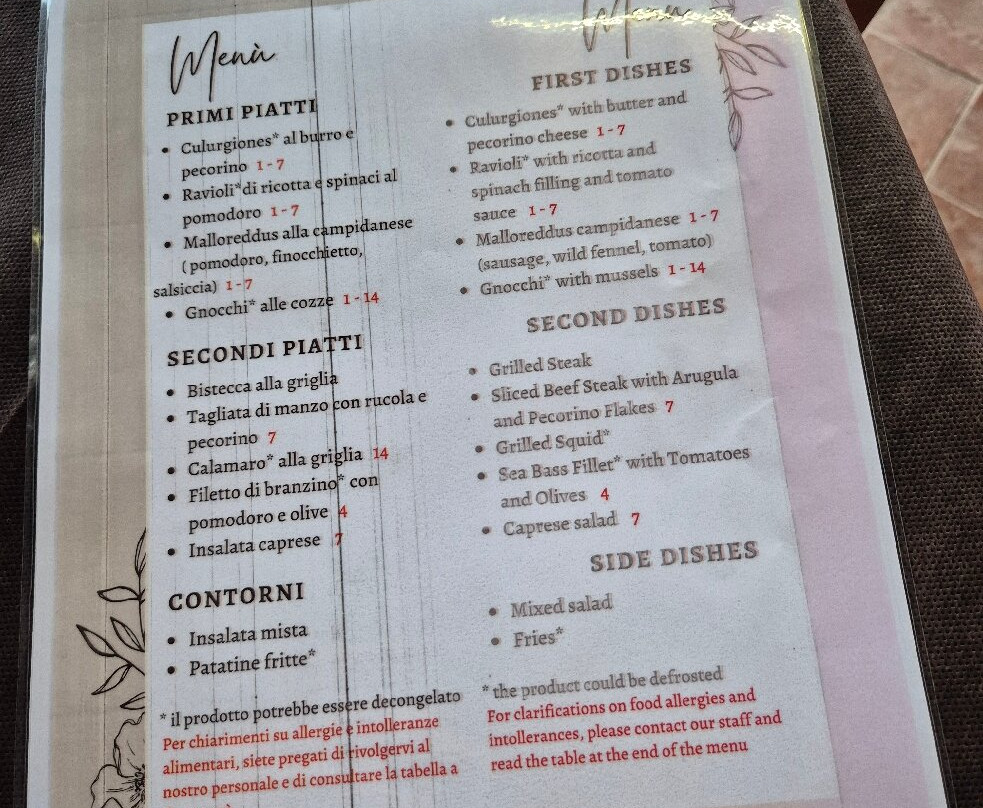 Menù
PRIMI PIATTI
• Culurgiones* al burro e
pecorino 1 - 7
• Ravioli*di ricotta e spinaci al
pomodoro 1 - 7
• Malloreddus alla campidanese
( pomodoro, finocchietto,
salsiccia) 1 - 7
• Gnocchi* alle cozze 1 - 14
SECONDI PIATTI
• Bistecca alla griglia
• Tagliata di manzo con rucola e
pecorino 7
• Calamaro* alla griglia 14
• Filetto di branzino* con
pomodoro e olive 4
• Insalata caprese 7
CONTORNI
• Insalata mista
• Patatine fritte*
* il prodotto potrebbe essere decongelato
Per chiarimenti su allergie e intolleranze
alimentari, siete pregati di rivolgervi al
nostro personale e di consultare la tabella a
Menu
FIRST DISHES
• Culurgiones* with butter and
pecorino cheese 1 - 7
• Ravioli* with ricotta and
spinach filling and tomato
sauce 1 - 7
• Malloreddus campidanese 1 - 7
(sausage, wild fennel, tomato)
• Gnocchi* with mussels 1 - 14
SECOND DISHES
• Grilled Steak
• Sliced Beef Steak with Arugula
and Pecorino Flakes 7
• Grilled Squid*
• Sea Bass Fillet* with Tomatoes
and Olives 4
• Caprese salad 7
SIDE DISHES
• Mixed salad
• Fries*
* the product could be defrosted
For clarifications on food allergies and
intollerances, please contact our staff and
read the table at the end of the menu